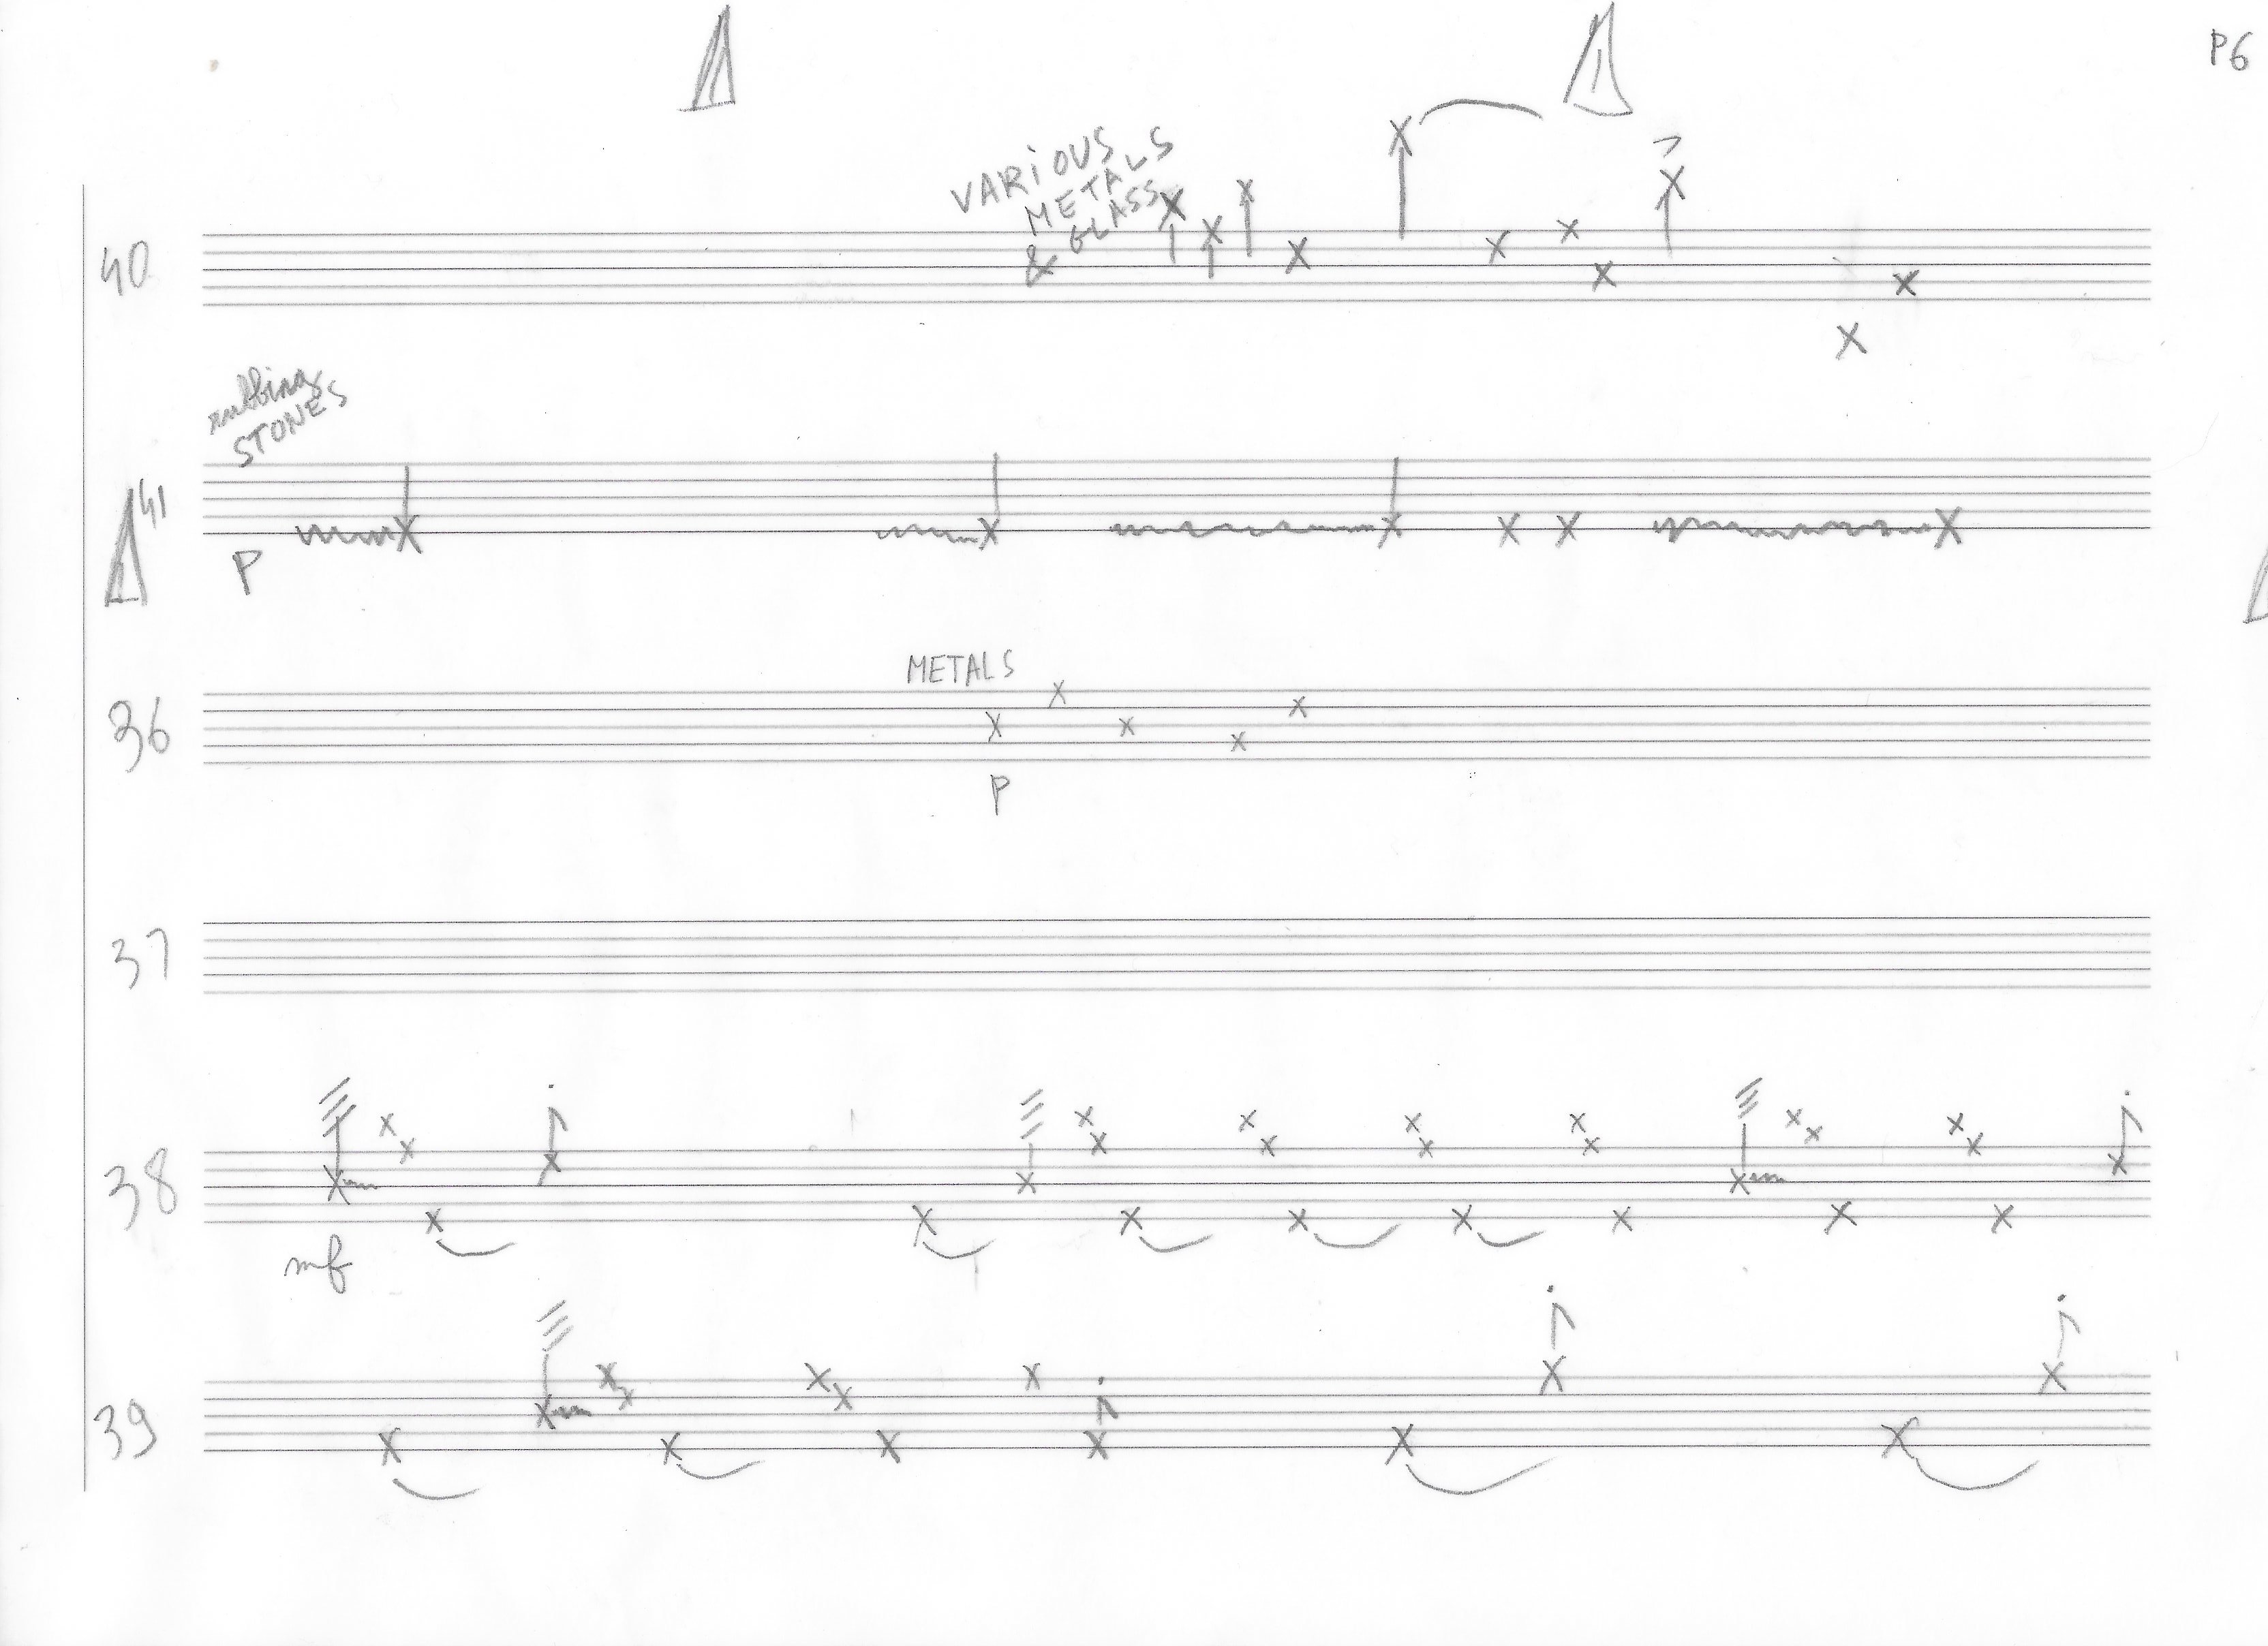 P6
VARIOUS
METALS
& GLASS
40
rubbing
STONES
41
P
METALS
36
P
37
38
mf
39